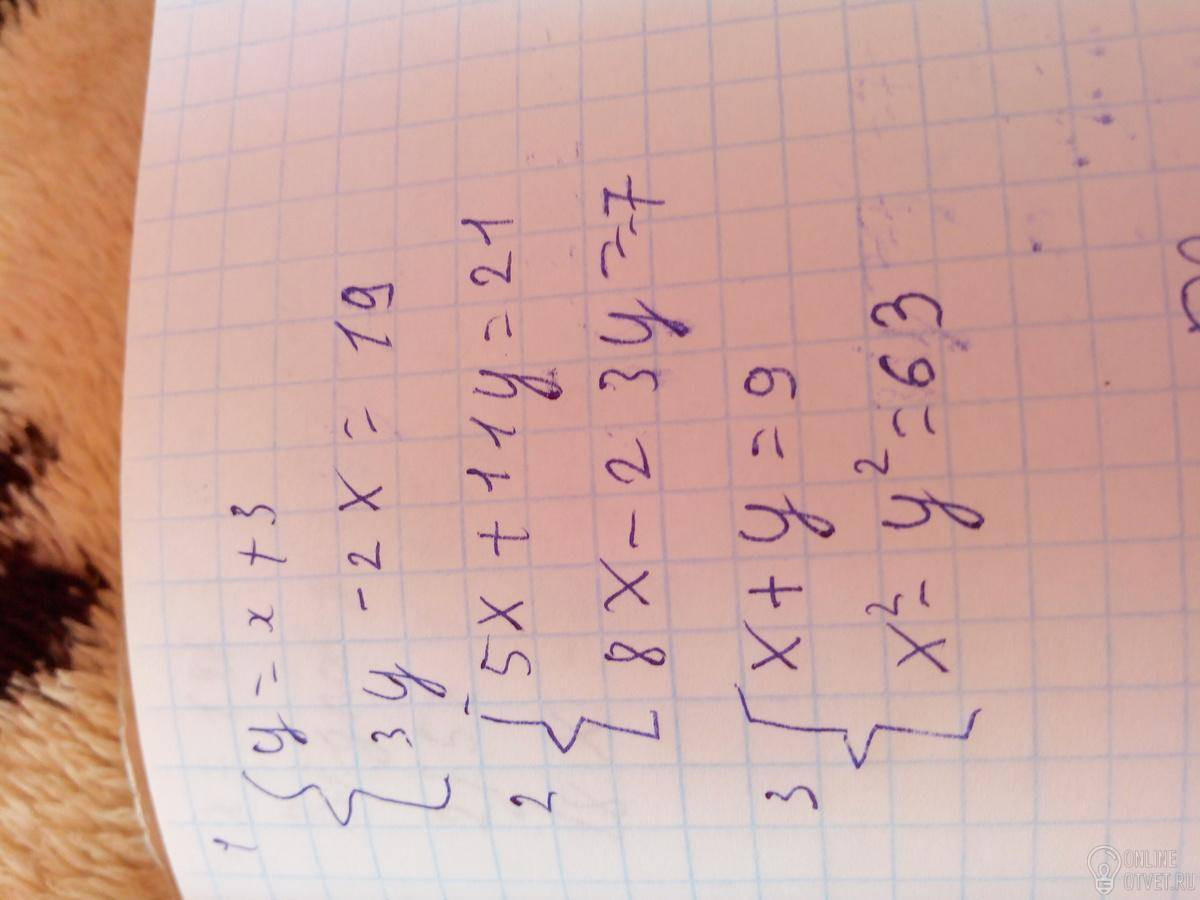 1 { y = x + 3
3y - 2x = 19
2 { 5x + 11y = 21
8x - 23y = -7
3 { x + y = 9
x² - y² = 63
ONLINE
OTVET.RU